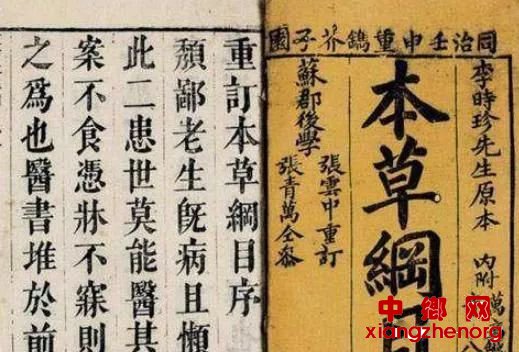 同治壬申重鐫芥子園
李時珍先生原本
內附萬
本草綱目
蘇郡後學
張雲中重訂
張青萬仝參
重訂本草綱目序
頽鄙老生既病且懶
此二患世莫能醫其
案不食憑牀不寐則
之爲也醫書堆於前
中鄉网
xiangzhenorg